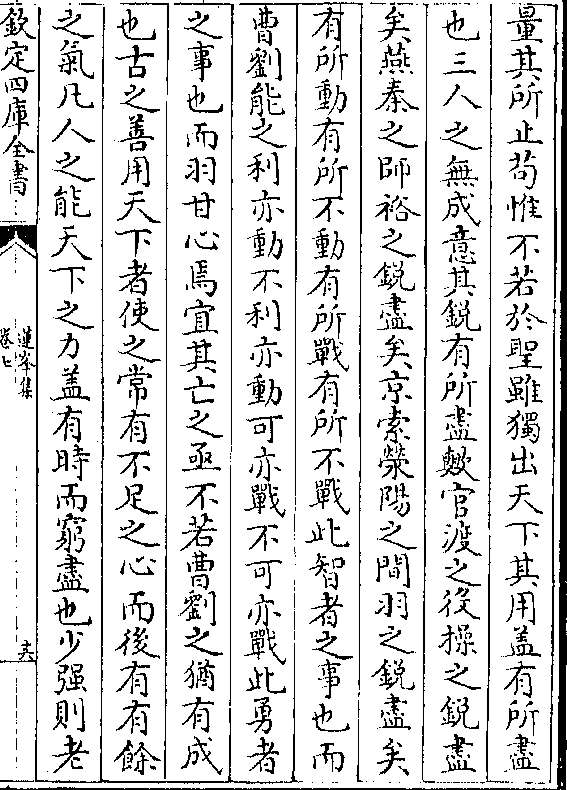 量其所止茍惟不若於聖雖獨出天下其用盖有所盡
也三人之無成意其鋭有所盡歟官渡之役操之鋭盡
矣燕秦之師裕之鋭盡矣京索滎陽之間羽之鋭盡矣
有所動有所不動有所戰有所不戰此智者之事也而
曹劉能之利亦動不利亦動可亦戰不可亦戰此勇者
之事也而羽甘心焉宜其亡之亟不若曹劉之猶有成
也古之善用天下者使之常有不足之心而後有有餘
之氣凡人之能天下之力盖有時而窮盡也少强則老
欽定四庫全書
蓮峯集
卷七